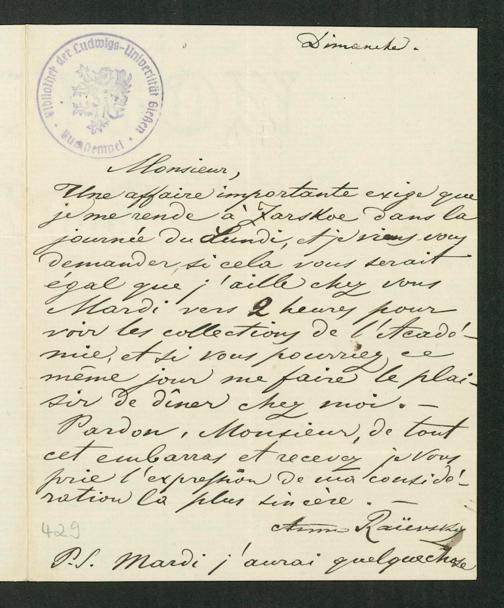 Dimanche.
Bibliothek der Ludwigs-Universität Gießen
Monsieur,
Une affaire importante exige que
je me rende à Zarskoe dans la
journée du Lundi, et je viens vous
demander, si cela vous serait
egal que j'aille chez vous
Mardi vers 2 heures pour
voir les collections de l'Acadé-
mie, et si vous pourriez ce
même jour me faire le plai-
sir de dîner chez moi. —
Pardon, Monsieur, de tout
cet embarras et recevez je vous
prie l'expression de ma considé-
ration la plus sincère. —
Anna Raïevsky
429
P.S. Mardi j'aurai quelque chose